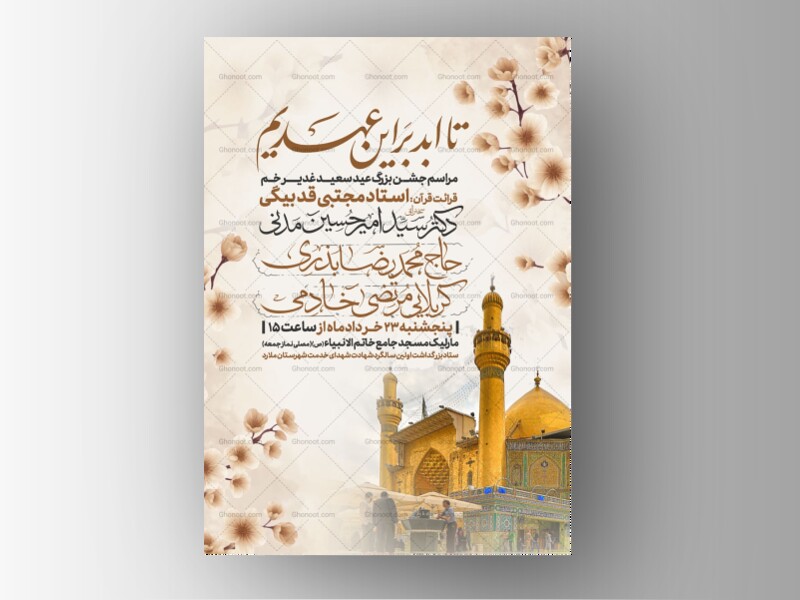 تا ابد بر این عهدیم
مراسم جشن بزرگ عید سعید غدیر خم
قرائت قرآن: استاد مجتبی قدبیگی
سخنرانی
دکتر سید امیرحسین مدنی
حاج محمدرضا بذری
کربلایی مرتضی خادمی
| پنجشنبه ۲۳ خردادماه از ساعت ۱۵ |
مارلیک مسجد جامع خاتم الانبیاء (ص) (مصلی نماز جمعه)
ستاد بزرگداشت اولین سالگرد شهادت شهدای خدمت شهرستان ملارد
Ghonoot.com